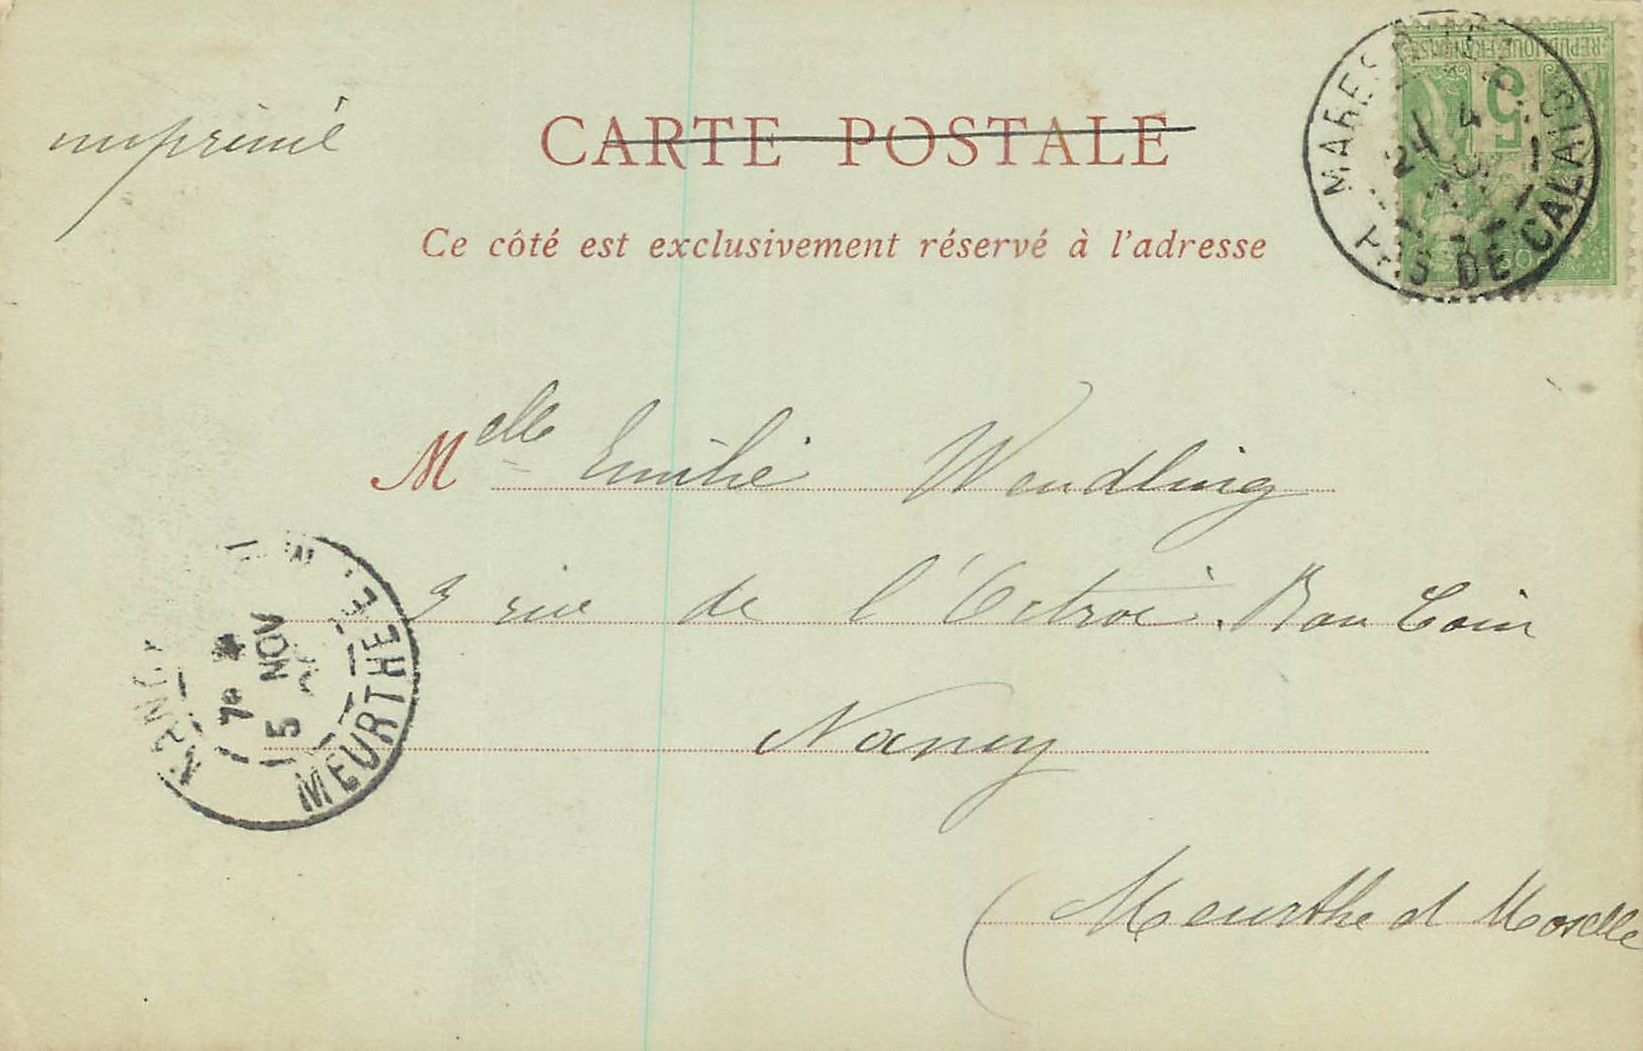 imprimé
CARTE POSTALE
RÉPUBLIQUE FRANÇAISE
5
PAS DE CALAIS
Ce côté est exclusivement réservé à l'adresse
Melle Emilie Wendling
3 rue de l'Octroi. Bon Coin
Nancy
(Meurthe et Moselle
NANCY
7e
5 NOV
MEURTHE